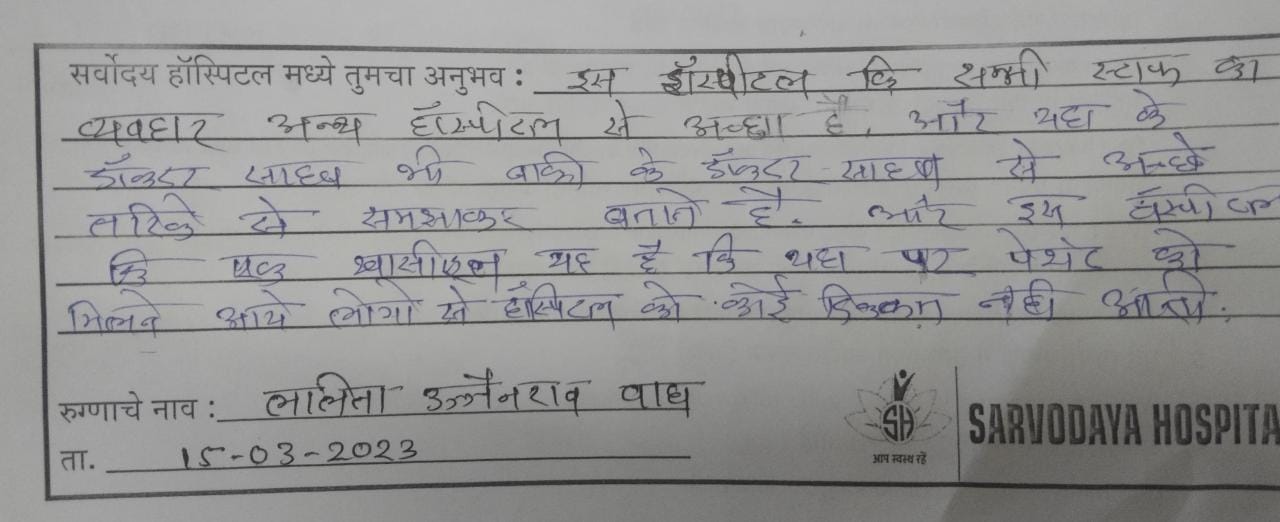 सर्वोदय हॉस्पिटल मध्ये तुमचा अनुभव : इस हॉस्पीटल कि सभी स्टाफ का
व्यवहार अन्य हॉस्पीटल से अच्छा है, और यहा के
डॉक्टर साहब भी बाकी के डॉक्टर साहब से अच्छे
तरिके से समझाकर बताते है. और इस हॉस्पीटल
कि एक खासीएत यह है कि यहा पर पेशंट को
मिलने आये लोगो से हॉस्पिटल को कोई दिक्कत नही आती.
रुग्णाचे नाव : ललिता उज्जैनराव वाघ
ता. 15-03-2023
SH
आप स्वस्थ रहें
SARVODAYA HOSPITA